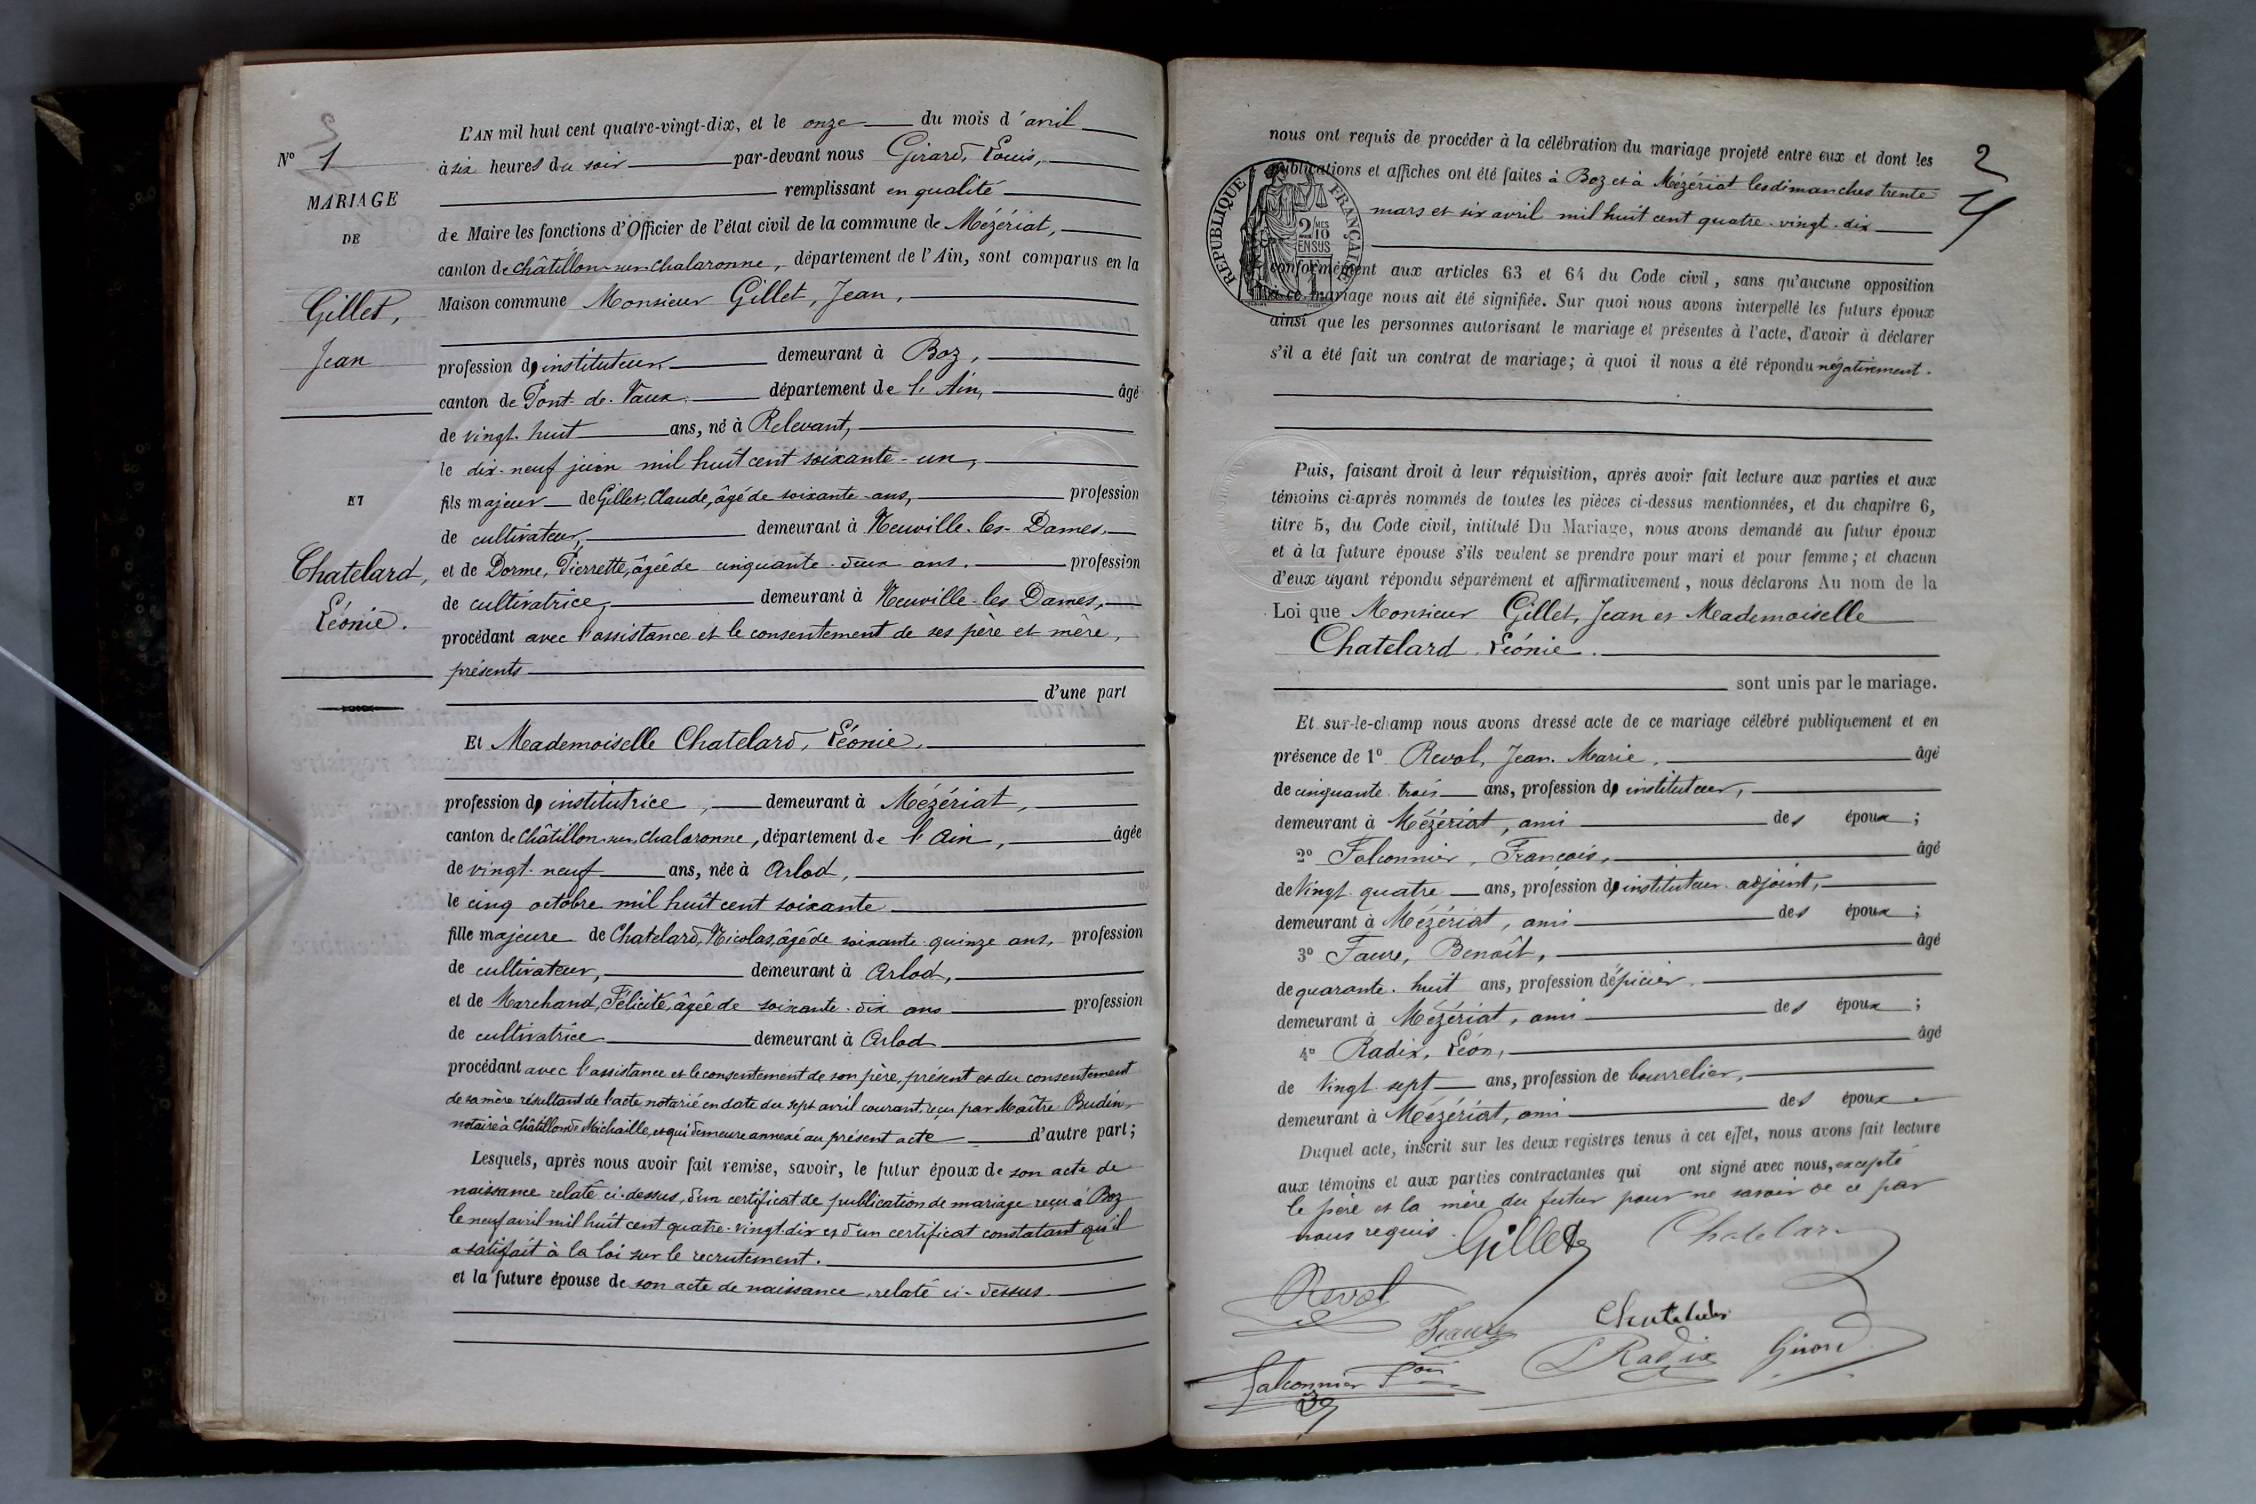 N° 1
MARIAGE
DE
Gillet,
Jean
ET
Chatelard,
Léonie.
L'AN mil huit cent quatre-vingt-dix, et le onze du mois d'avril
à six heures du soir par-devant nous Girard, Louis,
remplissant en qualité
de Maire les fonctions d'Officier de l'état civil de la commune de Mézériat,
canton de Châtillon-sur-Chalaronne, département de l'Ain, sont comparus en la
Maison commune Monsieur Gillet, Jean,
profession d'instituteur demeurant à Boz,
canton de Pont-de-Vaux département de l'Ain, âgé
de vingt-huit ans, né à Relevant,
le dix-neuf juin mil huit cent soixante-un,
fils majeur de Gillet, Claude, âgé de soixante ans, profession
de cultivateur, demeurant à Neuville-les-Dames,
et de Dorme, Pierrette, âgée de cinquante-deux ans, profession
de cultivatrice, demeurant à Neuville-les-Dames,
procédant avec l'assistance et le consentement de ses père et mère,
présents
d'une part
Et Mademoiselle Chatelard, Léonie,
profession d'institutrice, demeurant à Mézériat,
canton de Châtillon-sur-Chalaronne, département de l'Ain, âgée
de vingt-neuf ans, née à Arlod,
le cinq octobre mil huit cent soixante
fille majeure de Chatelard, Nicolas, âgé de soixante-quinze ans, profession
de cultivateur, demeurant à Arlod,
et de Marchand, Félicité, âgée de soixante-dix ans profession
de cultivatrice demeurant à Arlod
procédant avec l'assistance et le consentement de son père, présent et du consentement
de sa mère résultant de l'acte notarié en date du sept avril courant, reçu par Maître Budin,
notaire à Châtillon-de-Michaille, et qui demeure annexé au présent acte d'autre part;
Lesquels, après nous avoir fait remise, savoir, le futur époux de son acte de
naissance relaté ci-dessus, d'un certificat de publication de mariage reçu à Boz
le neuf avril mil huit cent quatre-vingt-dix et d'un certificat constatant qu'il
a satisfait à la loi sur le recrutement.
et la future épouse de son acte de naissance, relaté ci-dessus.
2
nous ont requis de procéder à la célébration du mariage projeté entre eux et dont les
publications et affiches ont été faites à Boz et à Mézériat les dimanches trente
mars et six avril mil huit cent quatre-vingt-dix
RÉPUBLIQUE FRANÇAISE
2 MES 10
EN SUS
conformément aux articles 63 et 64 du Code civil, sans qu'aucune opposition
à ce mariage nous ait été signifiée. Sur quoi nous avons interpellé les futurs époux
ainsi que les personnes autorisant le mariage et présentes à l'acte, d'avoir à déclarer
s'il a été fait un contrat de mariage; à quoi il nous a été répondu négativement.
Puis, faisant droit à leur réquisition, après avoir fait lecture aux parties et aux
témoins ci-après nommés de toutes les pièces ci-dessus mentionnées, et du chapitre 6,
titre 5, du Code civil, intitulé Du Mariage, nous avons demandé au futur époux
et à la future épouse s'ils veulent se prendre pour mari et pour femme; et chacun
d'eux ayant répondu séparément et affirmativement, nous déclarons Au nom de la
Loi que Monsieur Gillet, Jean et Mademoiselle
Chatelard Léonie.
sont unis par le mariage.
Et sur-le-champ nous avons dressé acte de ce mariage célébré publiquement et en
présence de 1° Revol, Jean-Marie, âgé
de cinquante-trois ans, profession d'instituteur,
demeurant à Mézériat, ami des époux;
2° Falconnier, François, âgé
de vingt-quatre ans, profession d'instituteur-adjoint,
demeurant à Mézériat, ami des époux;
3° Faure, Benoît, âgé
de quarante-huit ans, profession d'épicier
demeurant à Mézériat, ami des époux;
4° Radix, Léon, âgé
de vingt-sept ans, profession de bourrelier,
demeurant à Mézériat, ami des époux
Duquel acte, inscrit sur les deux registres tenus à cet effet, nous avons fait lecture
aux témoins et aux parties contractantes qui ont signé avec nous, excepté
le père et la mère du futur pour ne savoir de ce par
nous requis.
Gillet Chatelard
Revol
Faure
Falconnier Fois
L Radix Girard